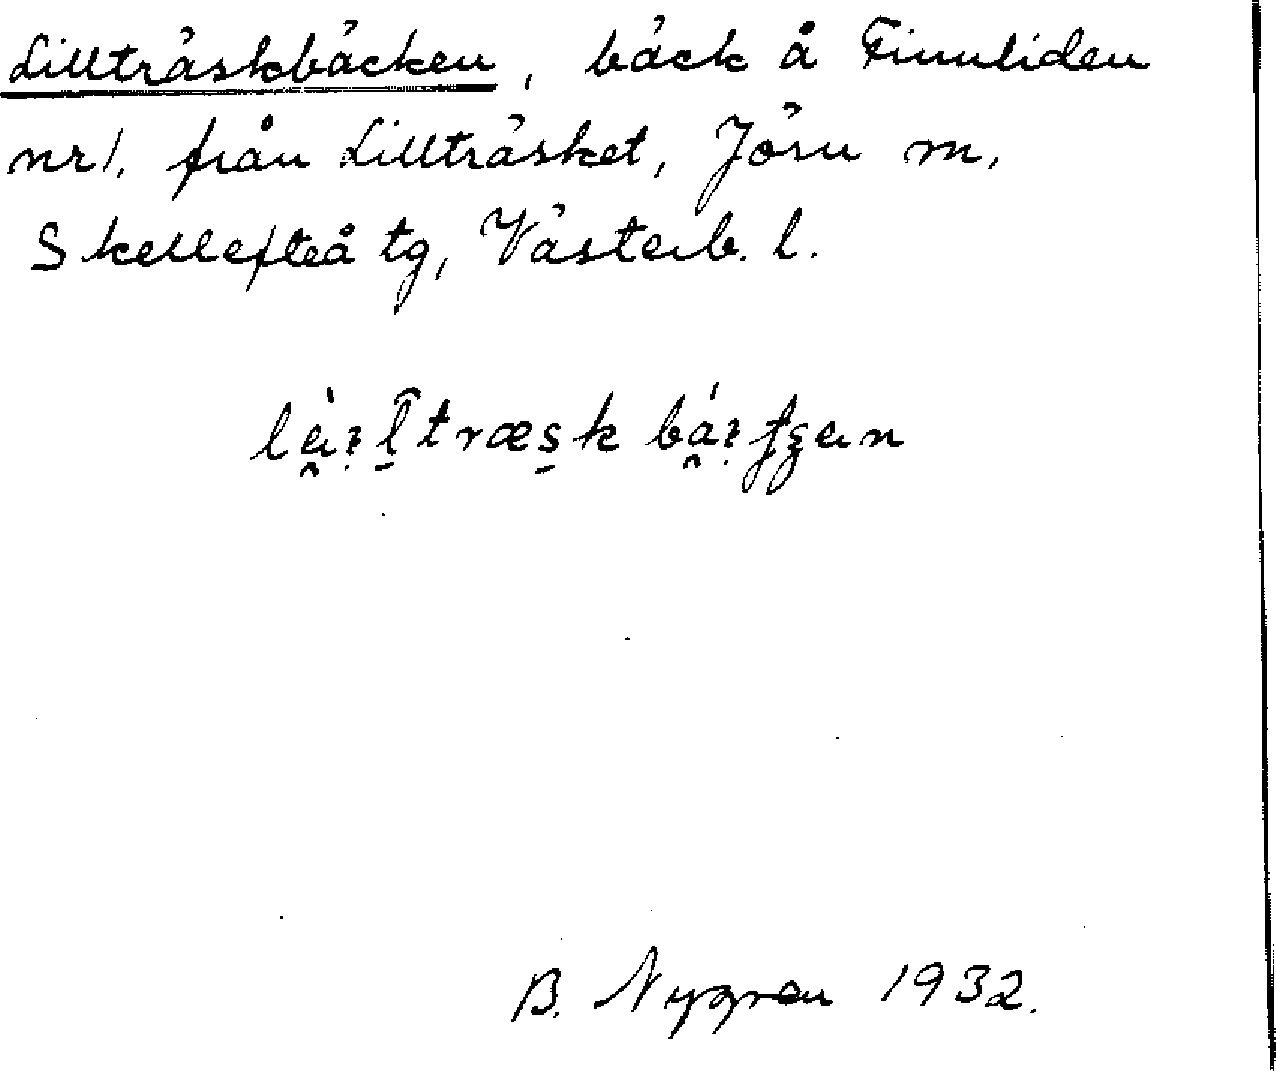 Lillträskbäcken, bäck å Finnliden
nr 1. från Lillträsket, Jörn m,
Skellefteå tg, Västerb. l.
B. Nygren 1932.